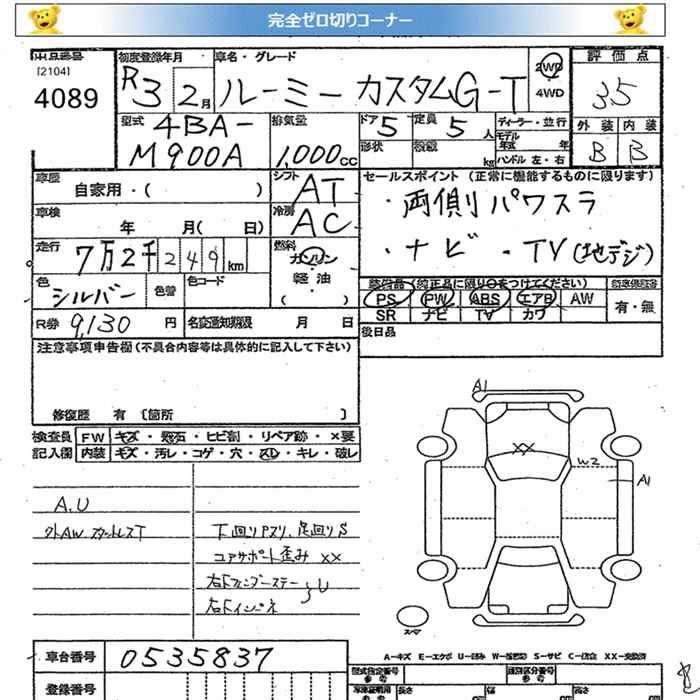 完全ゼロ切りコーナー
出品番号
[2104]
4089
初度登録年月
R3 2月
車名・グレード
ルーミー カスタムG-T
2WD
4WD
評価点
3.5
型式
4BA-
M900A
排気量
1,000cc
ドア
5
形状
定員
5人
積載
kg
ディーラー・並行
モデル
年式 年
ハンドル 左・右
外装 内装
B B
車歴
自家用・( )
シフト
AT
セールスポイント (正常に機能するものに限ります)
・両側パワスラ
・ナビ ・TV(地デジ)
車検
年 月( 日)
冷房
AC
走行
7万2千249km
燃料
ガソリン
軽油
( )
色
シルバー
色替
色コード
装備品(純正品に限り○をつけてください)
PS PW ABS エアB AW
SR ナビ TV カワ
有・無
R券
9,130円
名変通知期限 月 日
後日品
注意事項申告欄(不具合内容等は具体的に記入して下さい)
修復歴 有 〔箇所 〕
検査員
記入欄
FW キズ・飛石・ヒビ割・リペア跡・×要
内装 キズ・汚レ・コゲ・穴・スレ・キレ・破レ
A.U
外AW スタットレスT
下回りPスリ、足回りS
コアサポート歪み XX
右Fフェンダーステー
右Fインパネ
U
A1
XX
W2
A1
スペア
A-キズ E-エクボ U-凹み W-補修跡 S-サビ C-腐食 XX-交換済
車台番号
0535837
登録番号
型式指定番号
参考
類別区分番号
参考
車検証明用
参考
長さ
cm
幅
cm
高さ
cm